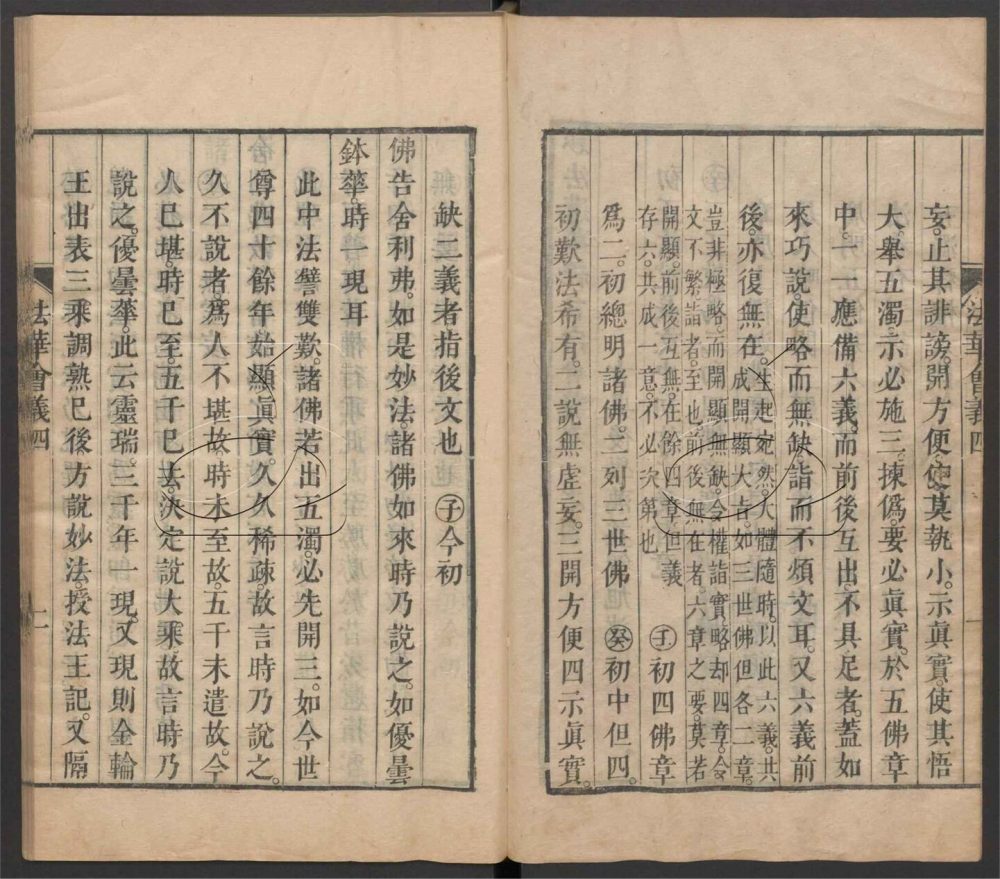 法華會義四
妄。止其誹謗。開方便。使莫執小。示眞實。使其悟
大。舉五濁。示必施三。揀僞。要必眞實。於五佛章
中。一一應備六義。而前後互出。不具足者。蓋如
來巧說。使略而無缺。詣而不煩文耳。又六義前
後。亦復無在。
生起宛然。大體隨時。以此六義。共
成開顯大吉。如三世佛但各二章。
豈非極略。而開顯無缺。令權詣實。略却四章。令
文不繁詣者。至也。前後無在者。六章之要。莫若
開顯。前後互無。在餘四章。但義
存六。共成一意。不必次第也
㊂初四佛章
爲二。初總明諸佛。二列三世佛 ㊉初中但四。
初歎法希有。二說無虛妄。三開方便。四示眞實。
缺二義者。指後文也 子今初
佛告舍利弗。如是妙法。諸佛如來時乃說之。如優曇
鉢華。時一現耳
此中法譬雙歎。諸佛若出五濁。必先開三。如今世
尊四十餘年。始顯眞實。久久稀疎。故言時乃說之。
久不說者。爲人不堪故。時未至故。五千未遣故。今
人已堪。時已至。五千已去。決定說大乘。故言時乃
說之。優曇華。此云靈瑞。三千年一現。又現則金輪
王出。表三乘調熟已後。方說妙法。授法王記。又隔
法華會義四
二